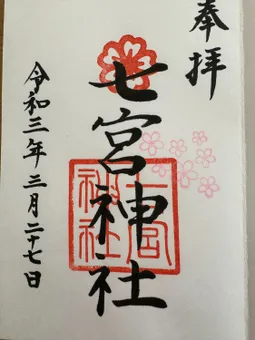 奉拝
七宮神社
七宮神社
令和三年三月二十七日